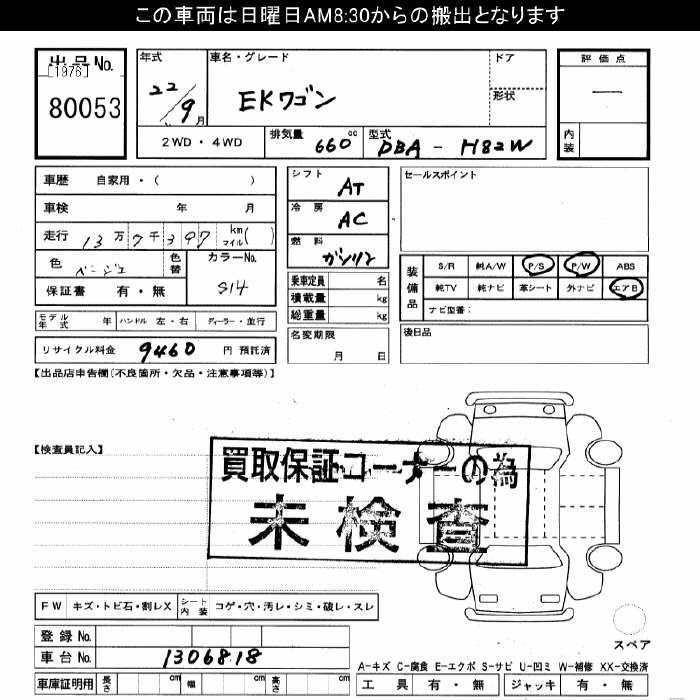 この車両は日曜日AM8:30からの搬出となります
出品No. 年式 車名・グレード ドア 評価点
[1976]
80053 22/9月 EKワゴン 形状 ー
2WD・4WD 排気量 660cc 型式 DBA-H82W 内装
車歴 自家用・( ) シフト AT セールスポイント
車検 年 月 冷房 AC
走行 13万7千397 km マイル( ) 燃料 ガソリン
色 ベージュ 色替 カラーNo. S14
装備品 S/R 純A/W P/S P/W ABS
保証書 有・無 乗車定員 名 純TV 純ナビ 革シート 外ナビ エアB
積載量 kg ナビ型番:
モデル年式 年 ハンドル 左・右 ディーラー・並行 総重量 kg
リサイクル料金 9460 円 預託済 名変期限 月 日 後日品
【出品店申告欄(不良箇所・欠品・注意事項等)】
【検査員記入】
買取保証コーナーの為
未検査
FW キズ・トビ石・割レX シート内装 コゲ・穴・汚レ・シミ・破レ・スレ
スペア
登録No.
車台No. 1306818
A-キズ C-腐食 E-エクボ S-サビ U-凹ミ W-補修 XX-交換済
車庫証明用 長さ cm 幅 cm 高さ cm 工具 有・無 ジャッキ 有・無